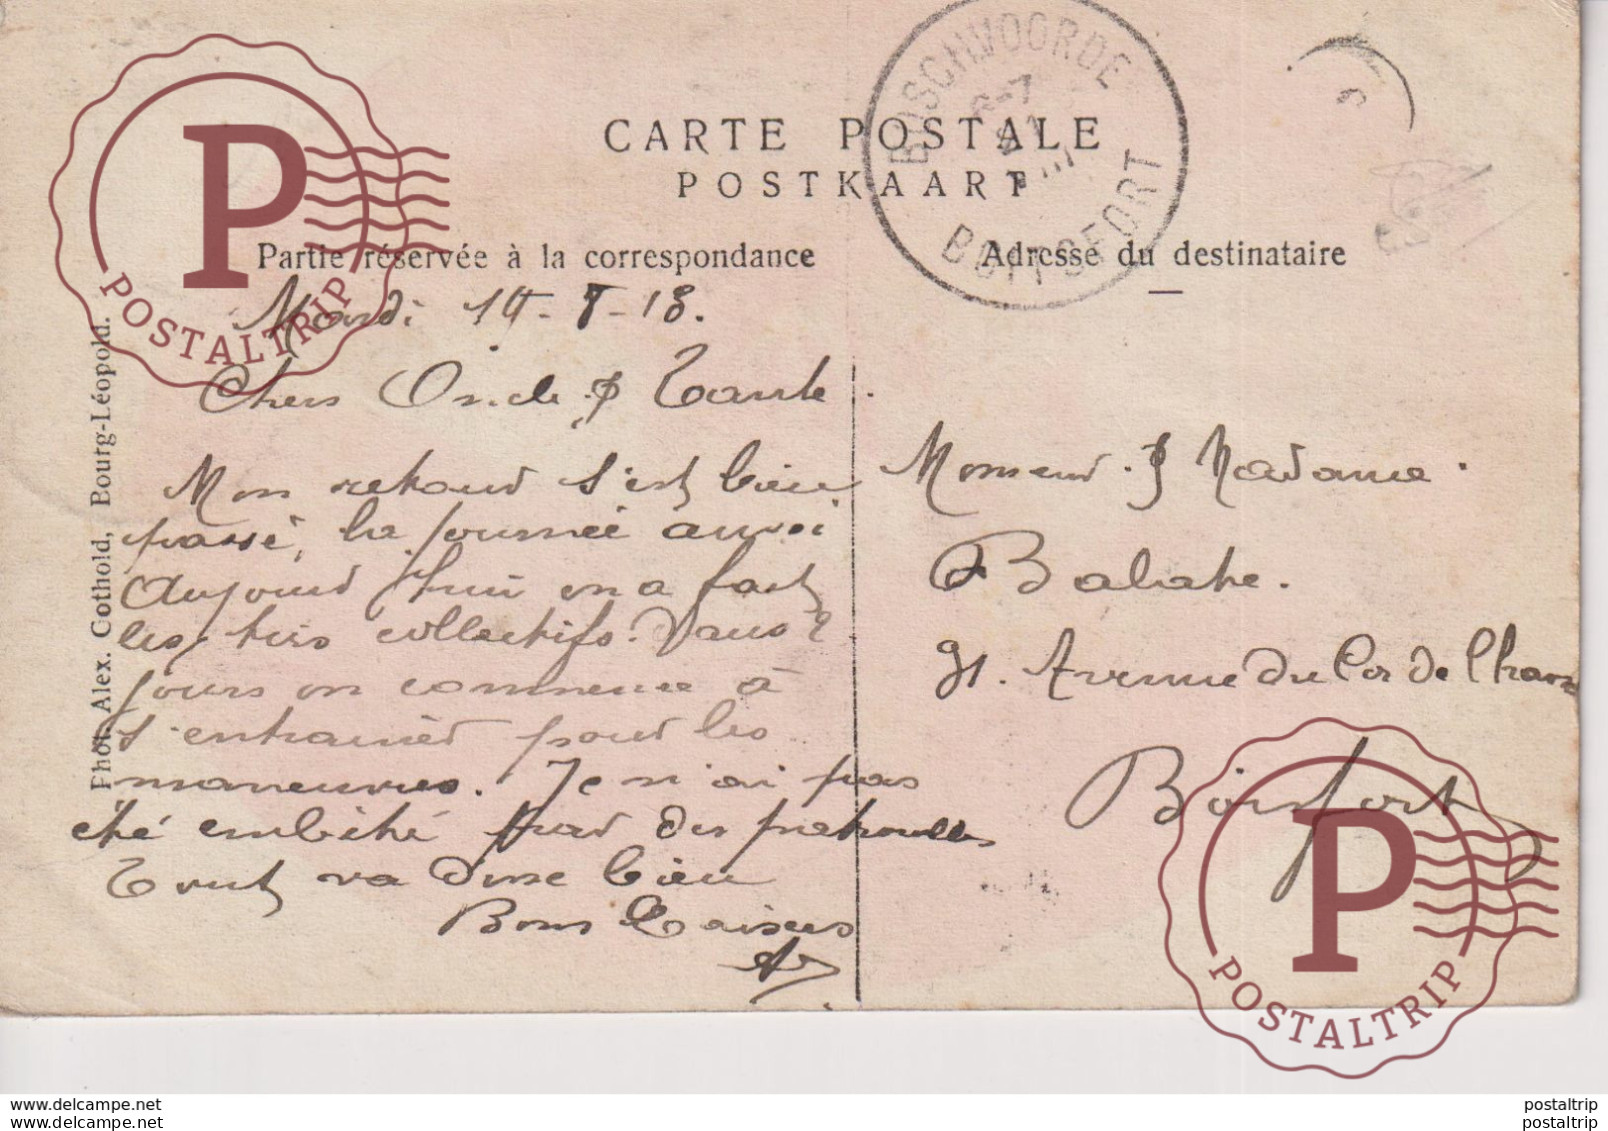 CARTE POSTALE
POSTKAART
Partie réservée à la correspondance
Adresse du destinataire
BOSCHVOORDE
6-7
BOITSFORT
Phot. Alex. Cothold, Bourg-Léopold.
Mardi 14-8-18.
Chers Oncle & Tante
Mon retour s'est bien
passé, la journée aussi
Aujourd'hui on a fait
les tirs collectifs. Dans 2
jours on commence à
s'entrainer pour les
maneuvres. Je n'ai pas
été embêté par des patrouilles
Tout va donc bien
Bons Baisers
Monsieur & Madame
91. Avenue du Cor de Chasse
Boitsfort
P
POSTALTRIP
P
POSTALTRIP
postaltrip.delcampe.net
postaltrip.delcampe.net
postaltrip
postaltrip